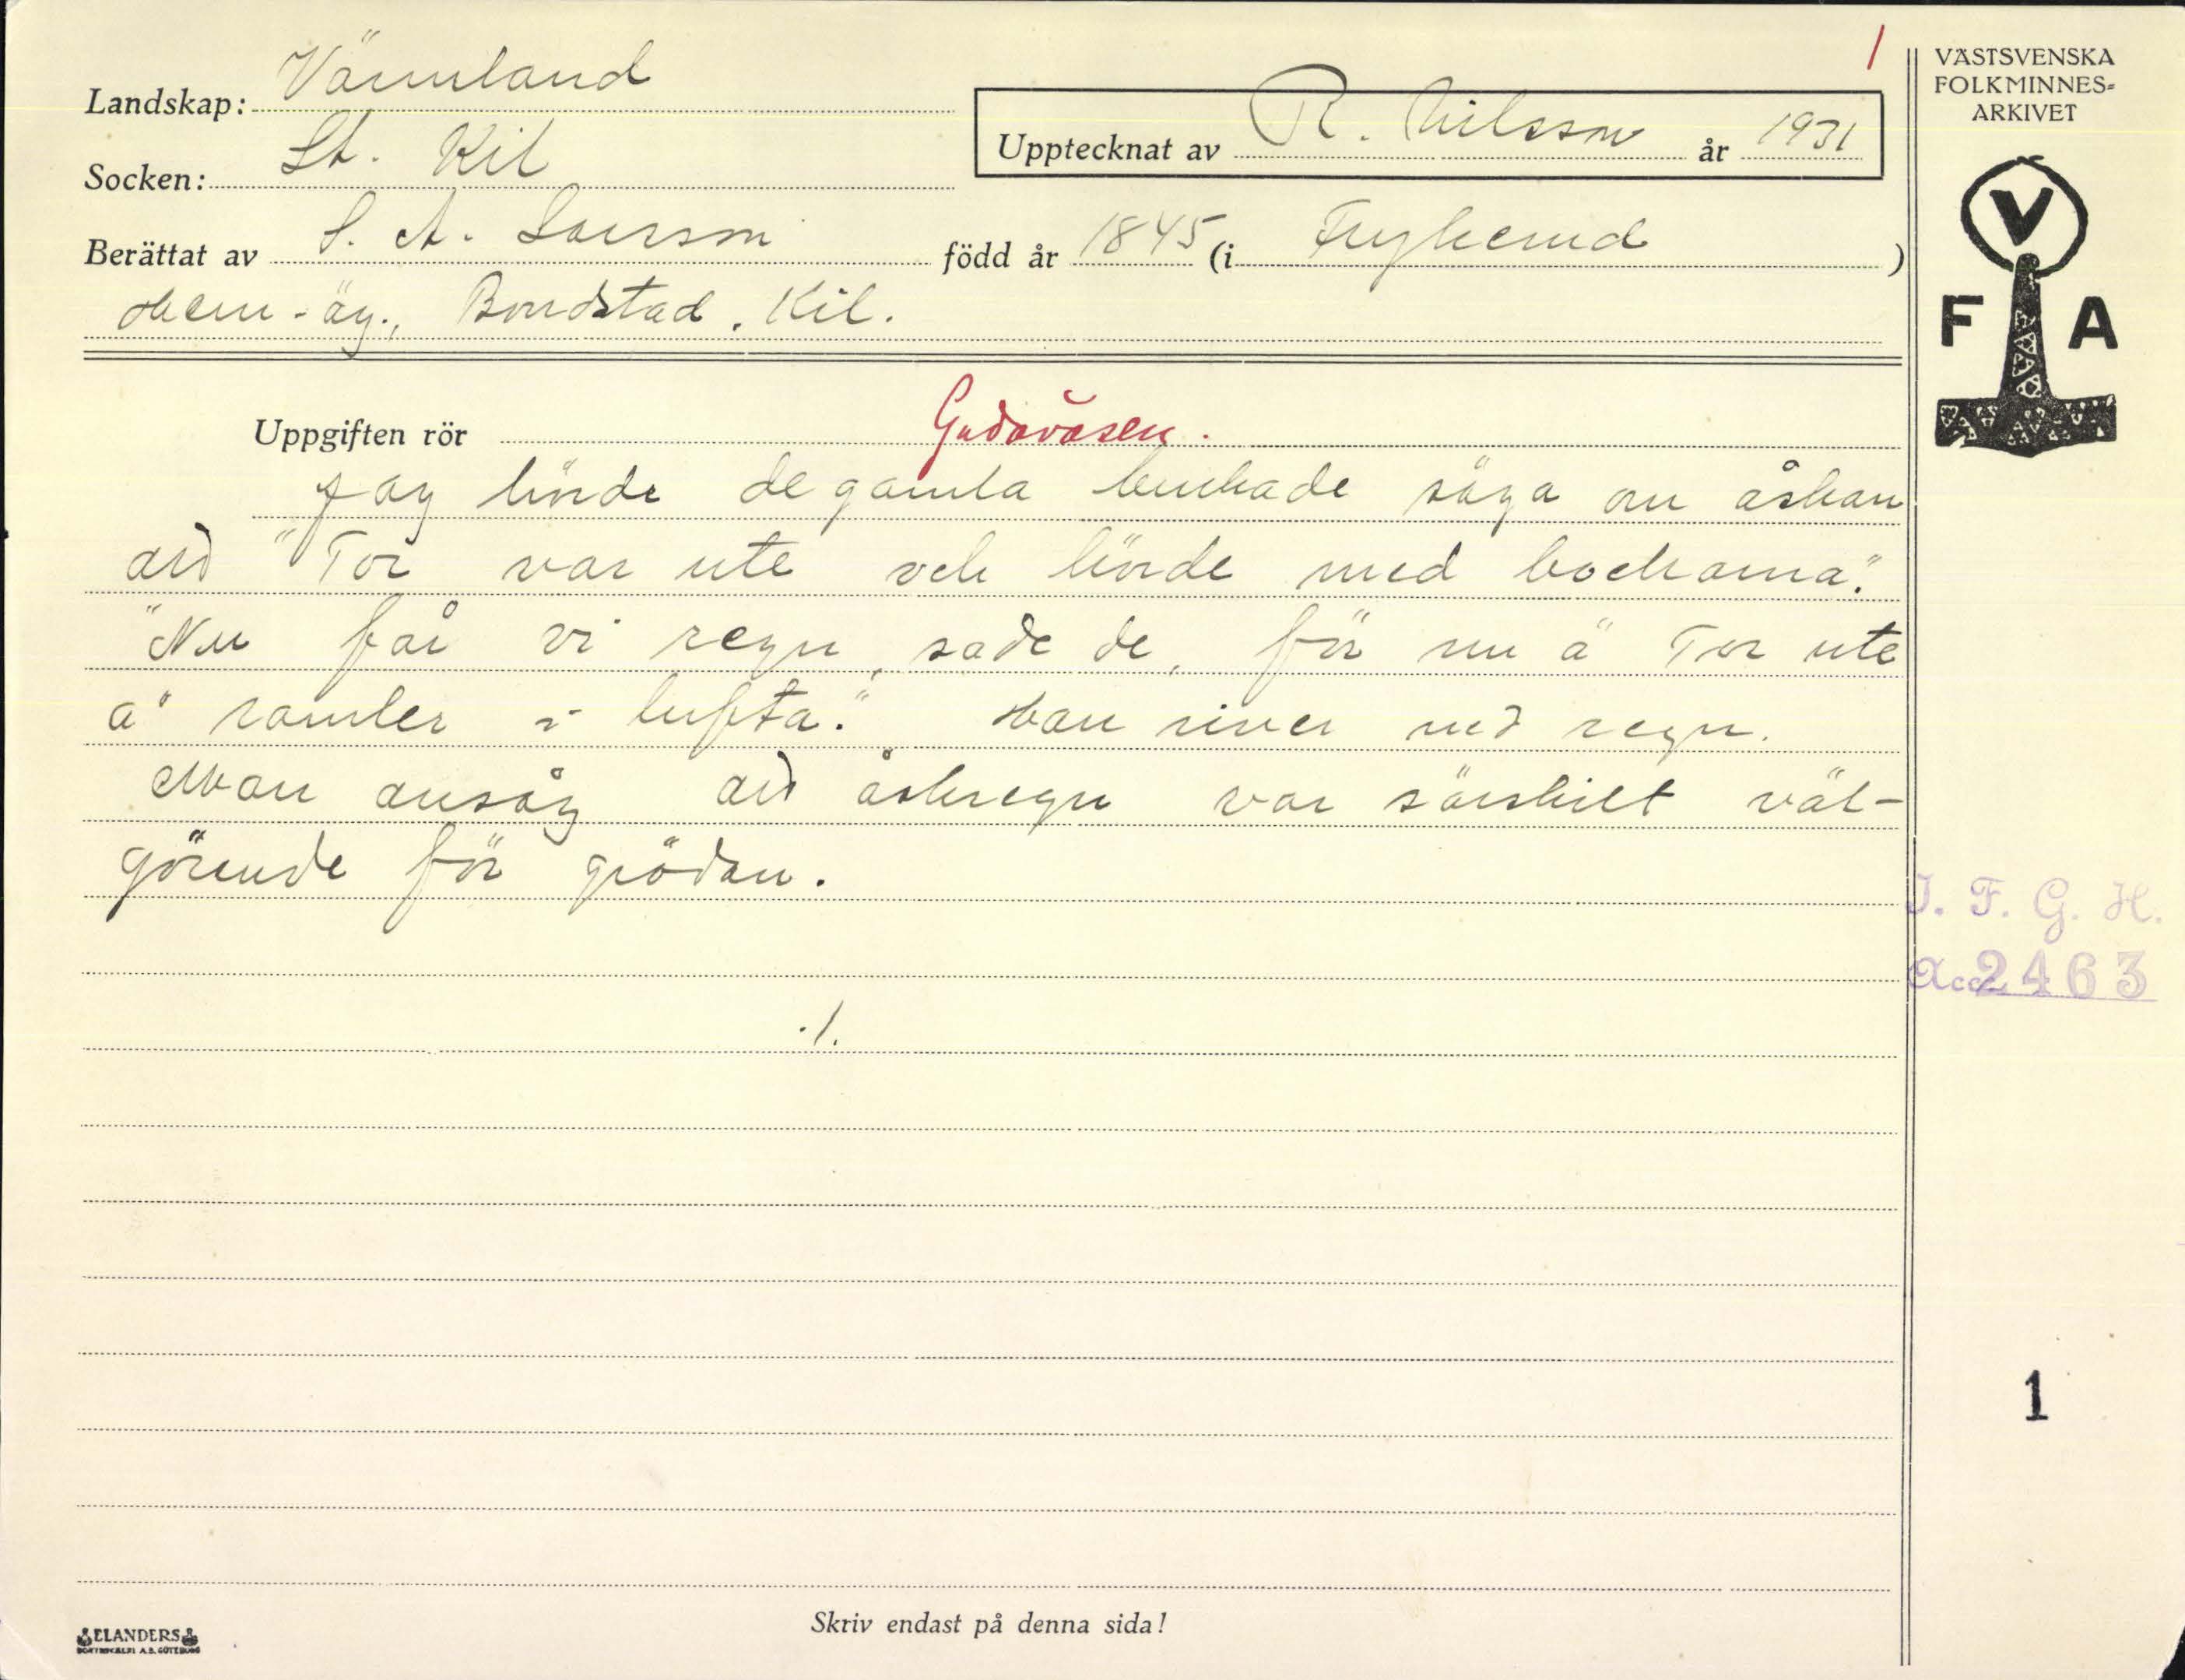 1
Landskap: Värmland
Socken: St. Kil
Upptecknat av R. Nilsson år 1931
Berättat av S. A. Larsson född år 1845 (i Frykerud)
Hem-äg., Bondstad, Kil.
Uppgiften rör Gudaväsen.
Jag hörde de gamla brukade säga om åskan
att "Tor var ute och körde med bockarna."
"Nu får vi regn, sade de, för nu ä Tor ute
å ramler i lufta." Han river ned regn.
Man ansåg att åskregn var särskilt väl-
görande för grödan.
./.
Skriv endast på denna sida!
ELANDERS
BOKTRYCKERI A.B. GÖTEBORG
VÄSTSVENSKA
FOLKMINNES-
ARKIVET
V
F A
I. F. G. H.
Acc. 2463
1